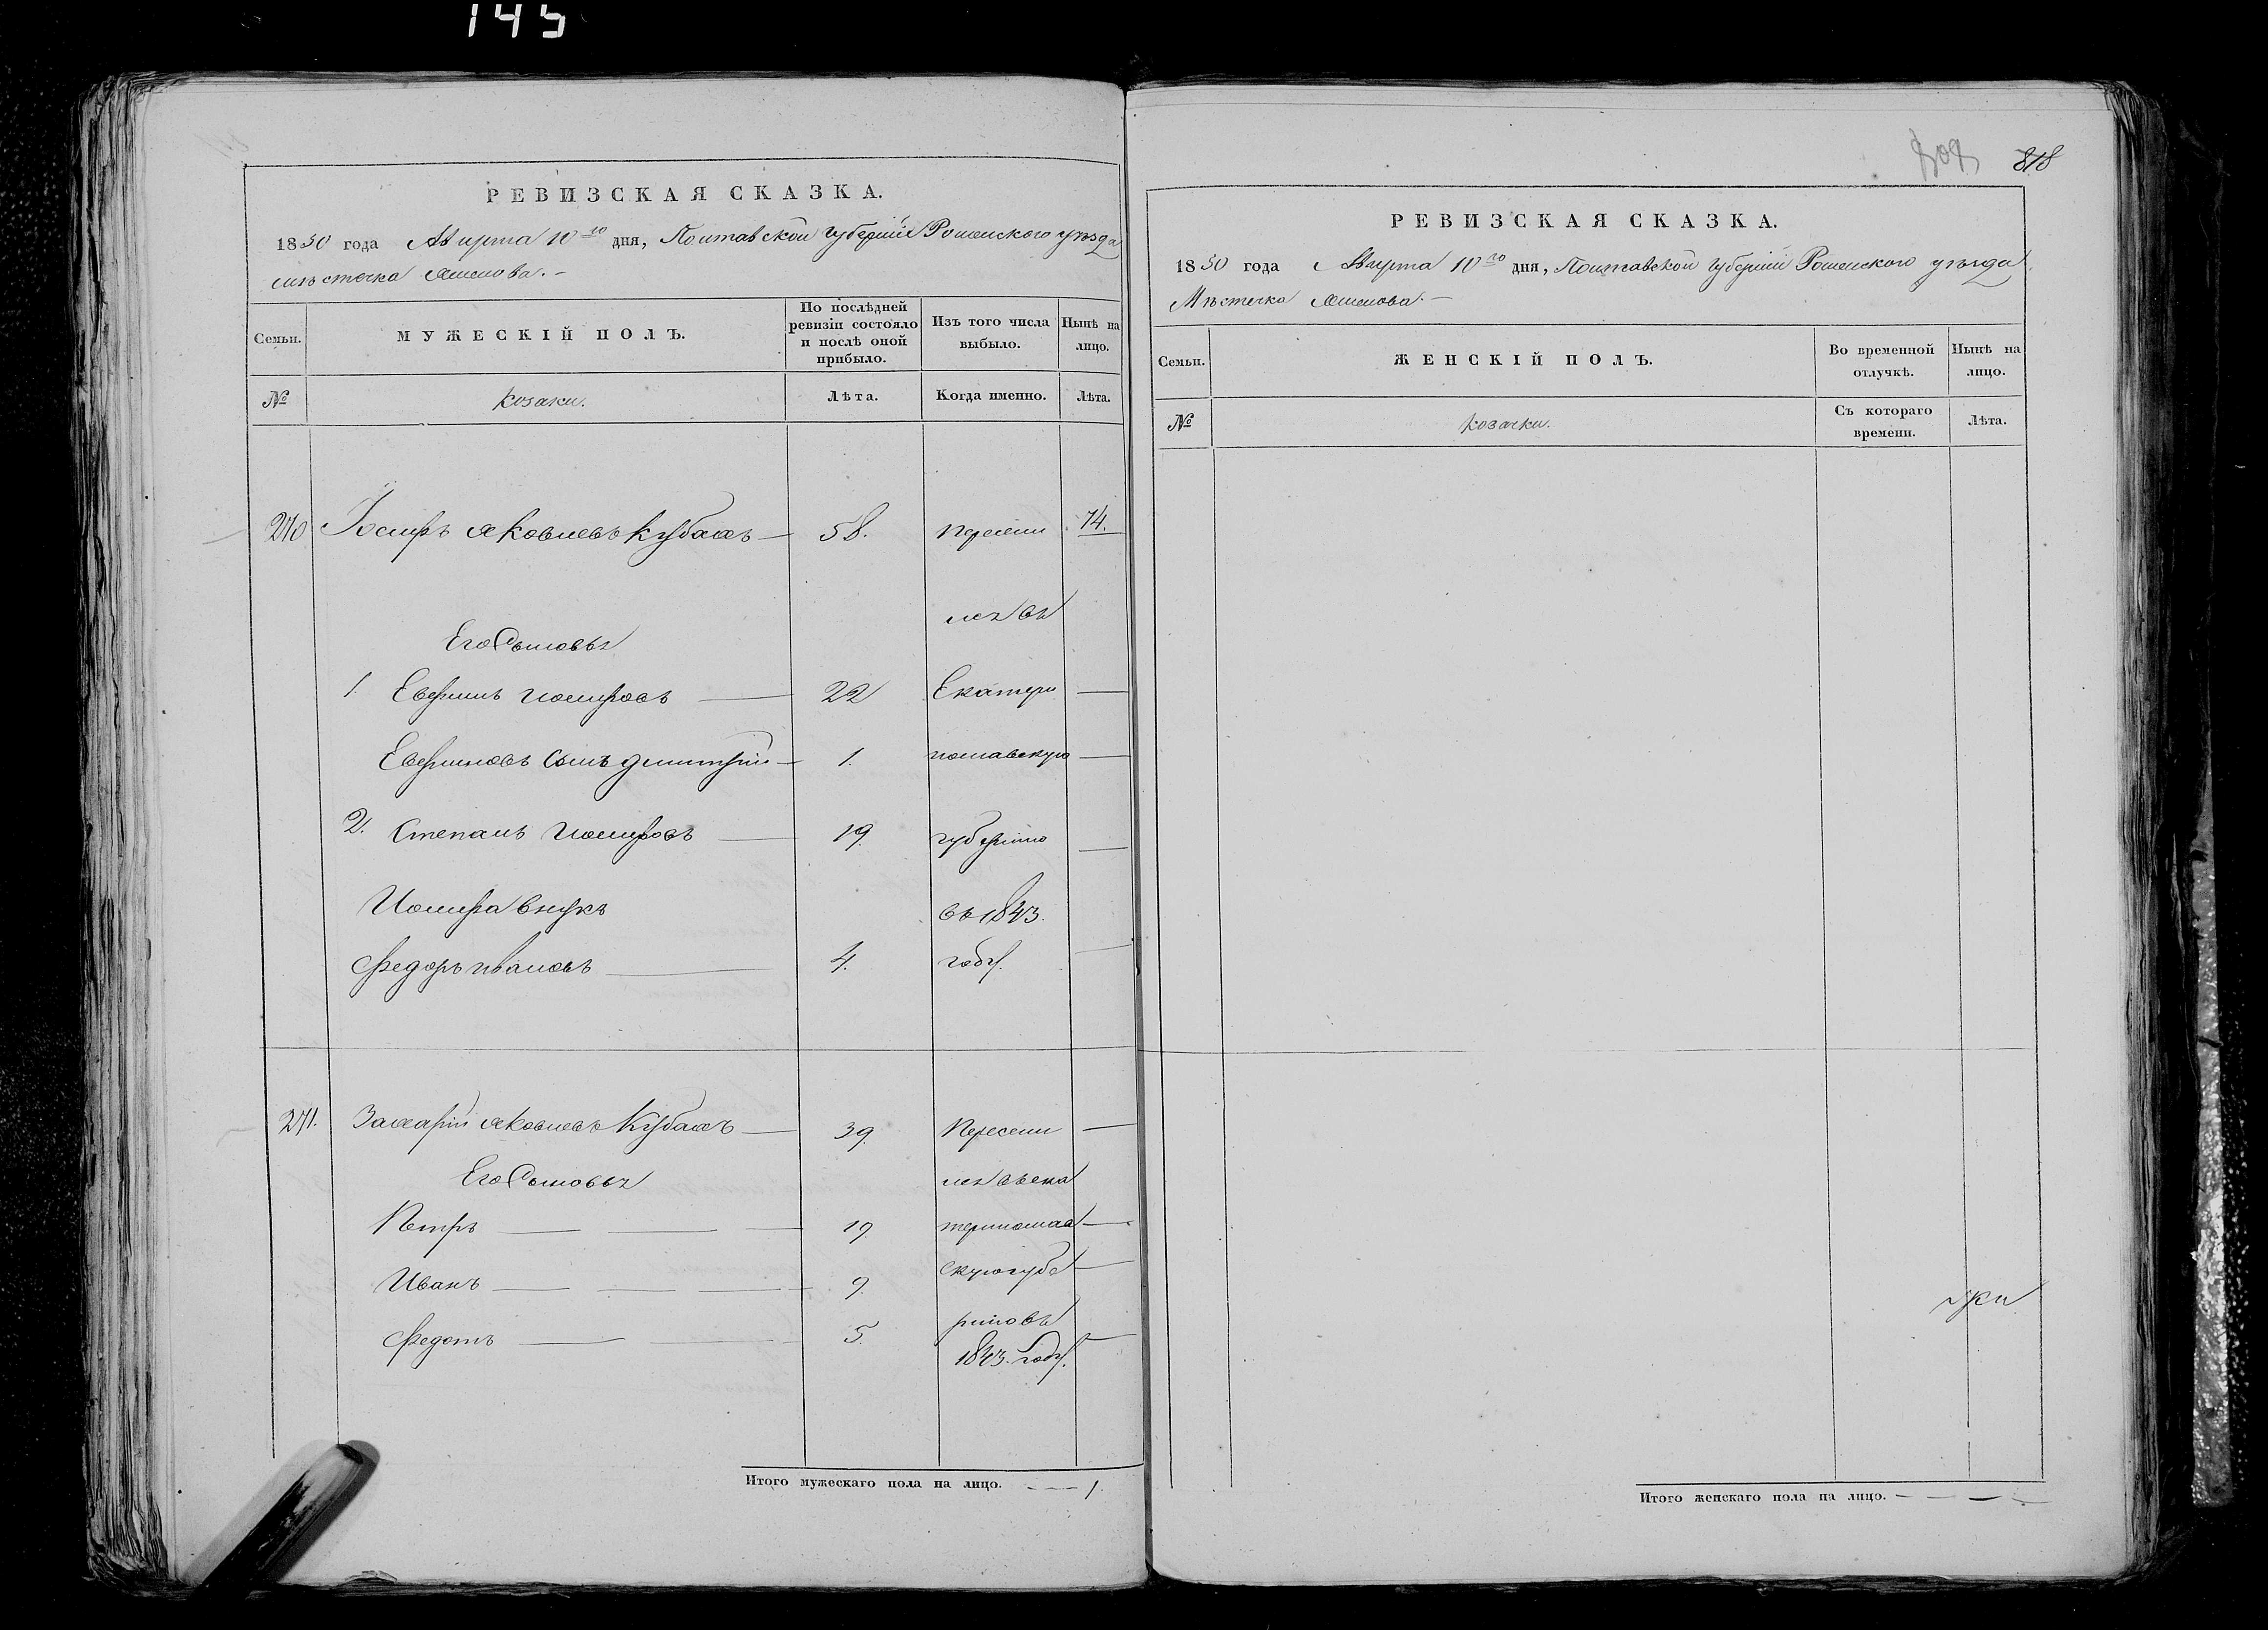 145
РЕВИЗСКАЯ СКАЗКА.
1850 года Августа 10го дня, Полтавской Губерніи Роменскаго уѣзда
мѣстечка Смелова.
Семьи.
МУЖЕСКІЙ ПОЛЪ.
По послѣдней ревизіи состояло и послѣ оной прибыло.
Изъ того числа выбыло.
Нынѣ на лицо.
№
Козаки.
Лѣта.
Когда именно.
Лѣта.
270 Іосифъ Яковлевъ Кубахъ 58. Пересели 74.
лен въ
Его Сыновья
1. Ефимъ Іосифовъ 22 Екатери
Ефимовъ Сынъ Дмитрій 1. нославскую
2. Степанъ Іосифовъ 19. губернію
Иосифа внукъ въ 1843.
Федоръ Ивановъ 4. году.
271. Захарій Яковлевъ Кубахъ 39. Пересели
Его Сыновья лен въ ека
Петръ 19. теринослав
Иванъ 9. скую губе
Федотъ 5. рнію въ
1843. году.
Итого мужескаго пола на лицо. 1.
818
РЕВИЗСКАЯ СКАЗКА.
1850 года Августа 10го дня, Полтавской Губерніи Роменского уѣзда
Мѣстечка Смелова.
Семьи.
ЖЕНСКІЙ ПОЛЪ.
Во временной отлучкѣ.
Нынѣ на лицо.
№
Козачки.
Съ котораго времени.
Лѣта.
Итого женскаго пола на лицо.